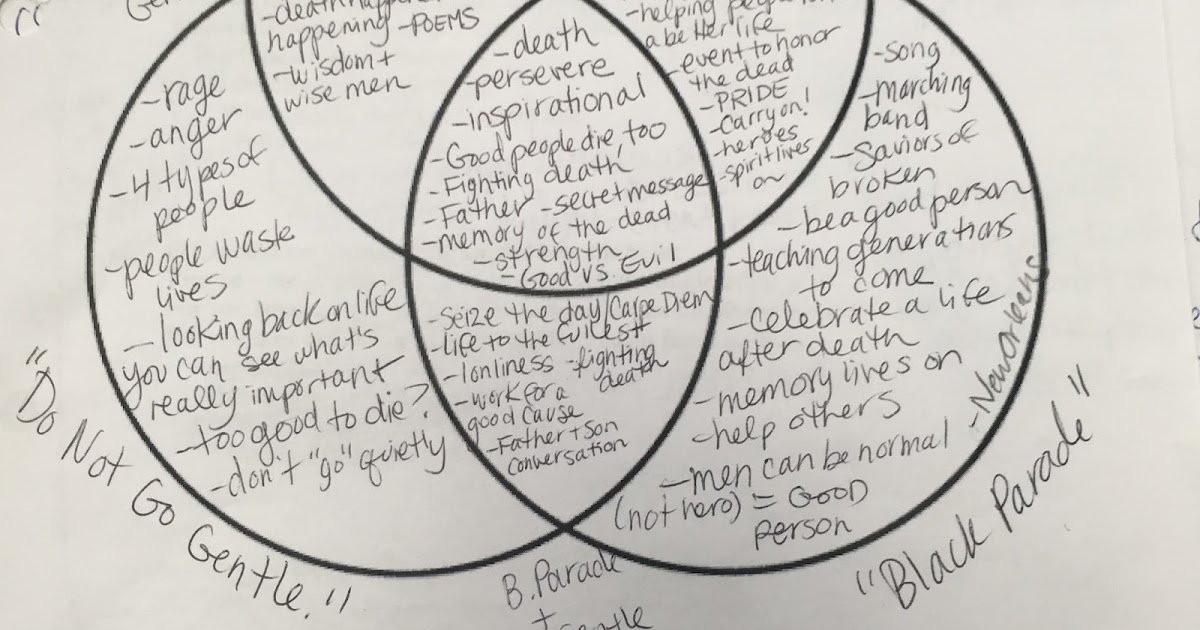 Gen
-death happ
happening -POEMS
-wisdom +
wise men
-helping peop
a better life
-event to honor
the dead
-PRIDE
-Carry on!
-heroes
-spirit lives
on
-death
-persevere
-inspirational
-Good people die, too
-Fighting death
-Father -secret message
-memory of the dead
-strength
-Good vs. Evil
-rage
-anger
-4 types of
people
-people waste
lives
-looking back on life
you can see what's
really important
-too good to die?
-don't "go" quietly
-song
-marching
band
-Saviors of
broken
-be a good person
-teaching generations
to come
-celebrate a life
after death
-memory lives on
-help others
-men can be normal
(not hero) = GOOD
person
-New Orleans
-Seize the day/Carpe Diem
-life to the fullest
-lonliness -fighting
death
-work for a
good cause
-Father + Son
conversation
"Do Not Go Gentle."
"Black Parade"
B. Parade
+ Gentle